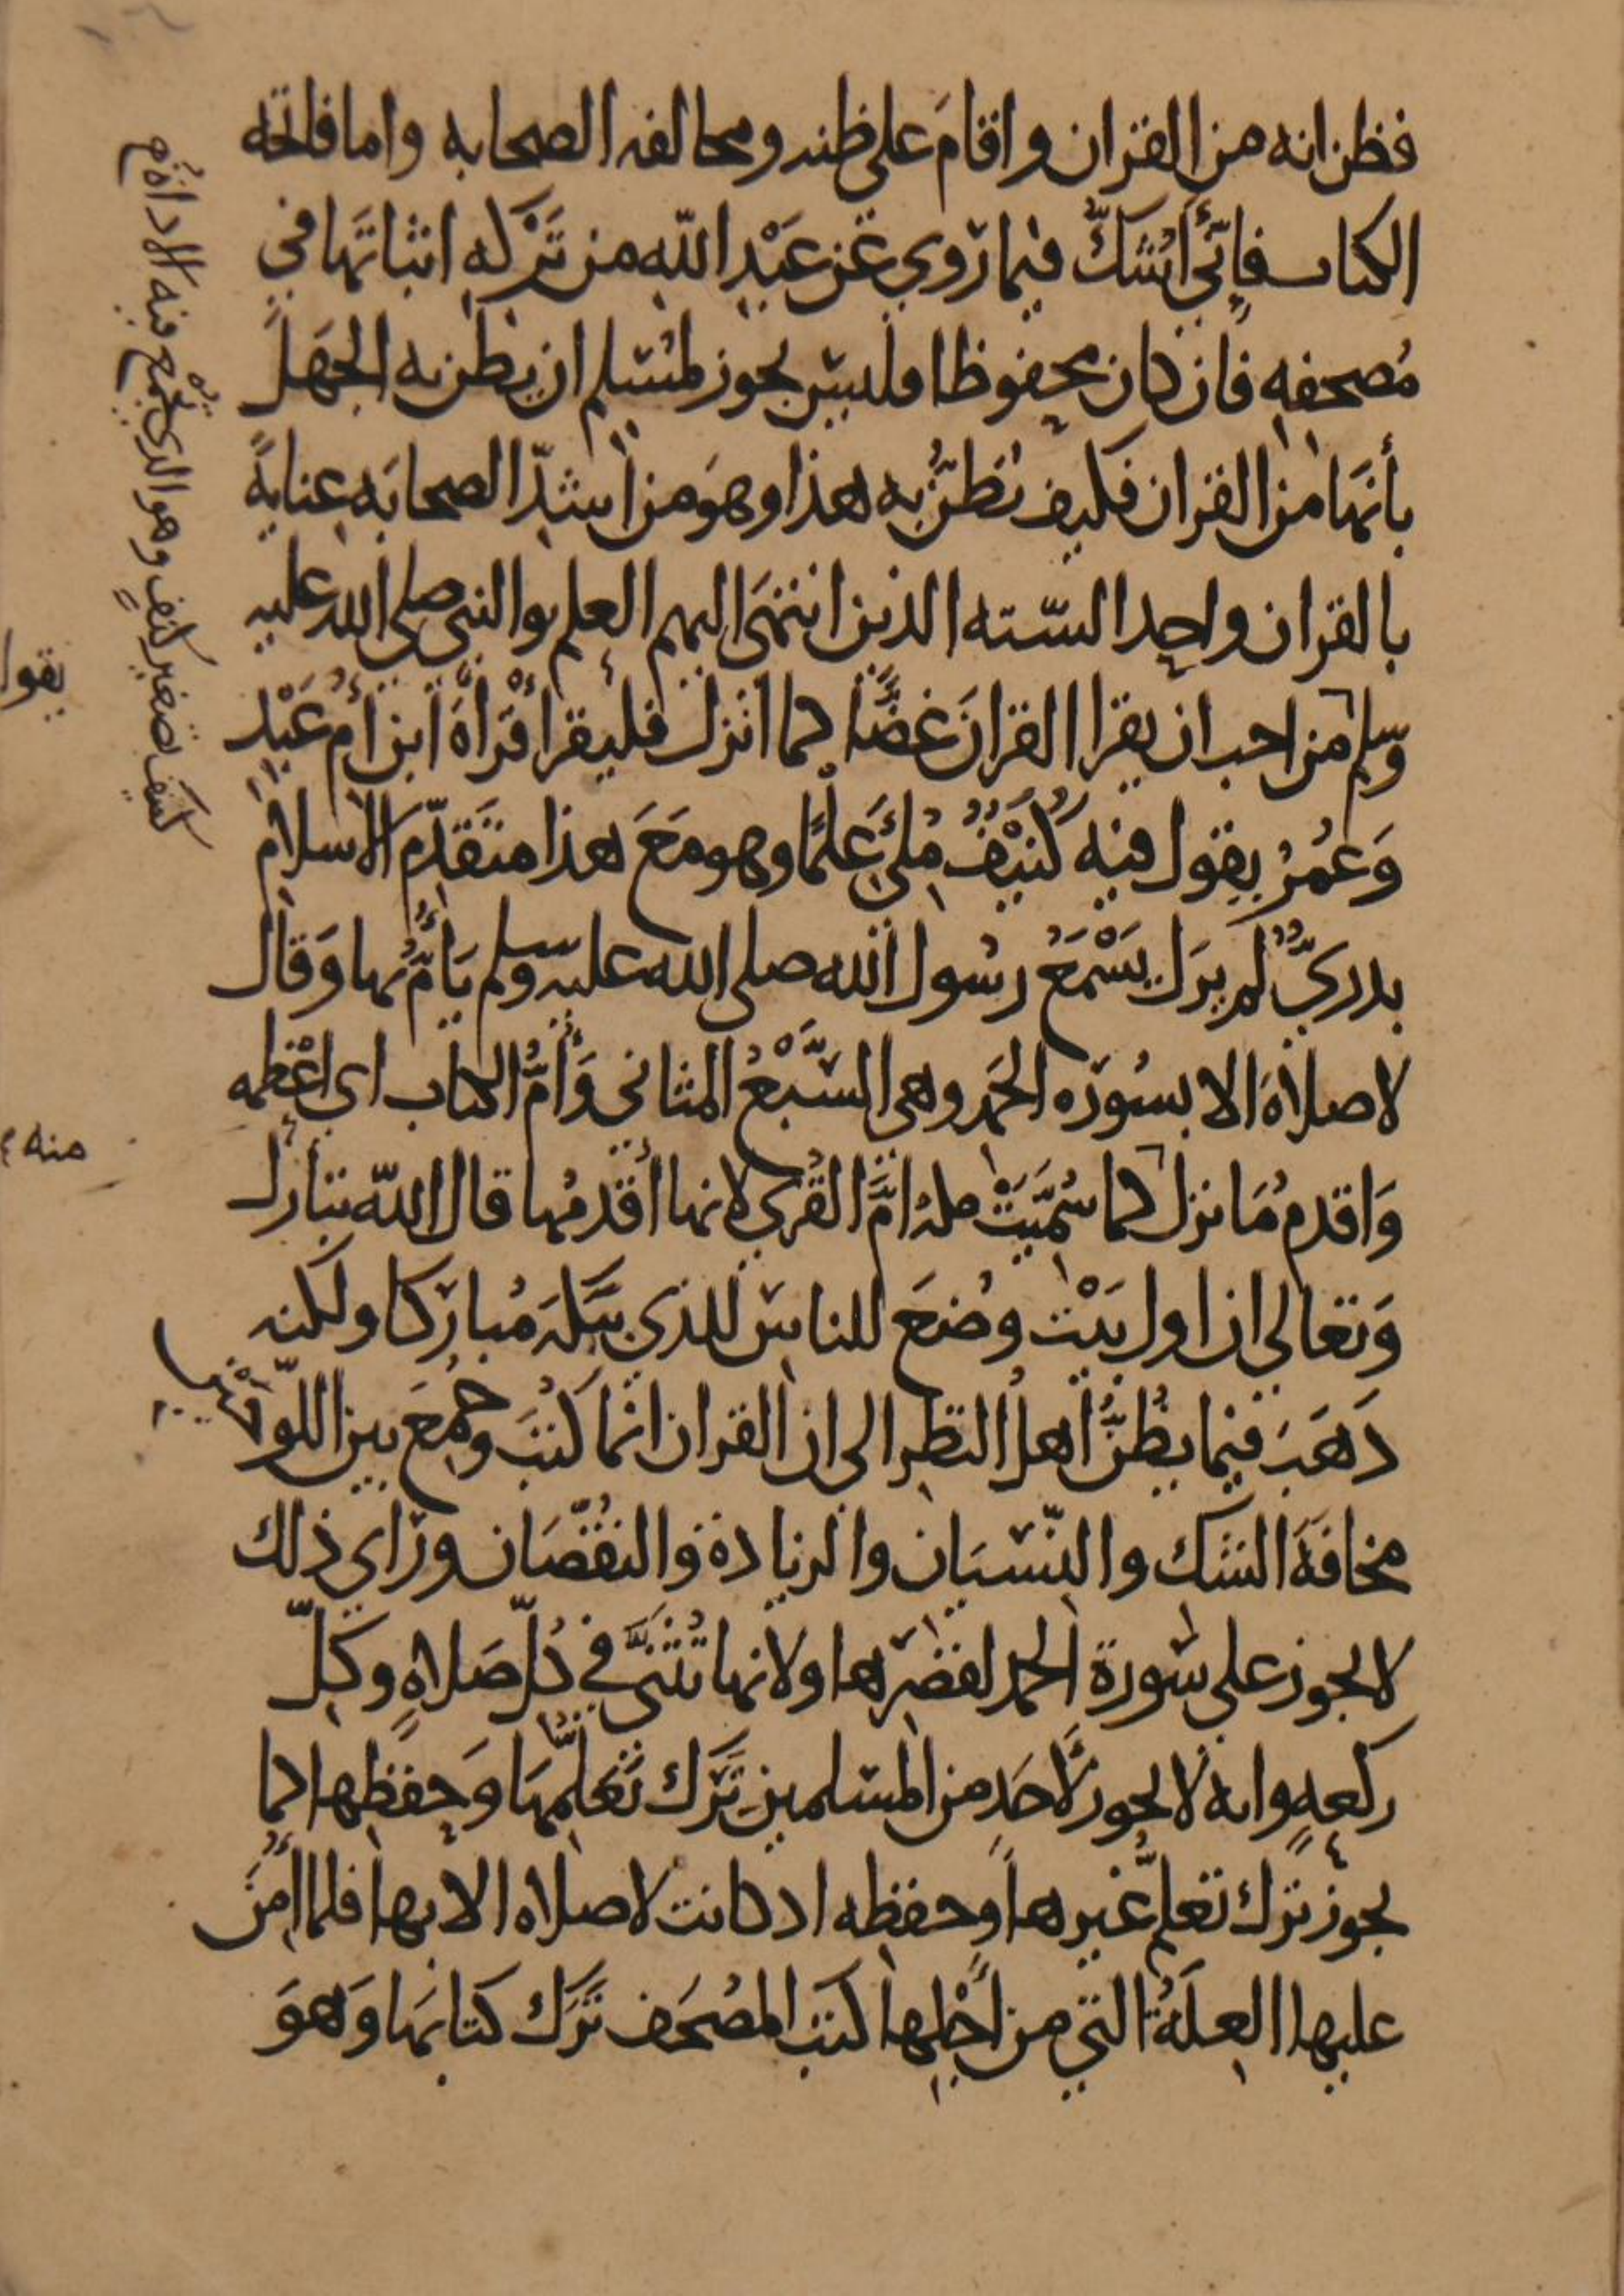 فظن انه من القران واقامَ على ظنه ومخالفه الصحابه واما فاتحه
الكتاب فإنّي أشكُّ فيما رُوي عَن عَبْدِ اللّه من تَرْكه اثباتَها في
مُصحفِه فان كان محفوظا فليس يجوز لمسلم ان يظن به الجَهلَ
بأنَها من القران فكيف نَظُنُّ به هذا وهوَ من أشدّ الصحابَه عِنايةً
بالقران واحِد السّته الذين انتهَى اليهم العلم والنبي صلى الله عليه
وسلم يقول من احب ان يقرا القرانَ غضًّا كما انزل فليقرأ قرْأَةَ ابن أمِ عَبْدٍ
وَعُمَرُ يقول فيه كُنَيْفٌ مُلِئَ عِلمًا وهو مَعَ هذا متَقدِّم الاسلام
بدريٌّ لم يزَل يَسْمَعُ رسُول الله صلى الله عليه وسلم يَأمُّ بها وَقال
لا صلاةَ الا بسُورَه الحَمد وهى السَّبْعُ المثاني وَأمُّ الكتاب اي اعْظمه
وَاقدمُ مَا نزل منه كما سُمّيَتْ مكه امَّ القُرى لانها أقدمُها قال اللّه تبارك
وَتعالى ان اول بَيْت وضُعَ للناس للذي ببكَّهَ مُبارَكا ولكنه
ذَهَبَ فيما يظُنُّ أهلُ النظر الى ان القران انما كُتبَ وجُمعَ بين اللّوحَيْن
مخافَةَ الشك والنّسيَان والزيادة والنقُصَان وراي ذلك
لا يجوز على سُورة الحمد لقصَرها ولانها تُثنَّى في كُلّ صَلاةٍ وكلّ
ركعهٍ وانه لا يجوز لأحَد من المسلمين تَرَك تَعلّمهَا وَحِفظها كما
يجوز ترك تعلّم غيرها وحفظه اذ كانت لا صلاه الا بها فلما أمِنَ
عليها العِلَةُ التي من أجْلِها كتب المصُحَف تَرَك كتابَها وَهوَ
كنيف تصغير كنفٍ وهو الذي يَجْمع فيه الاداة